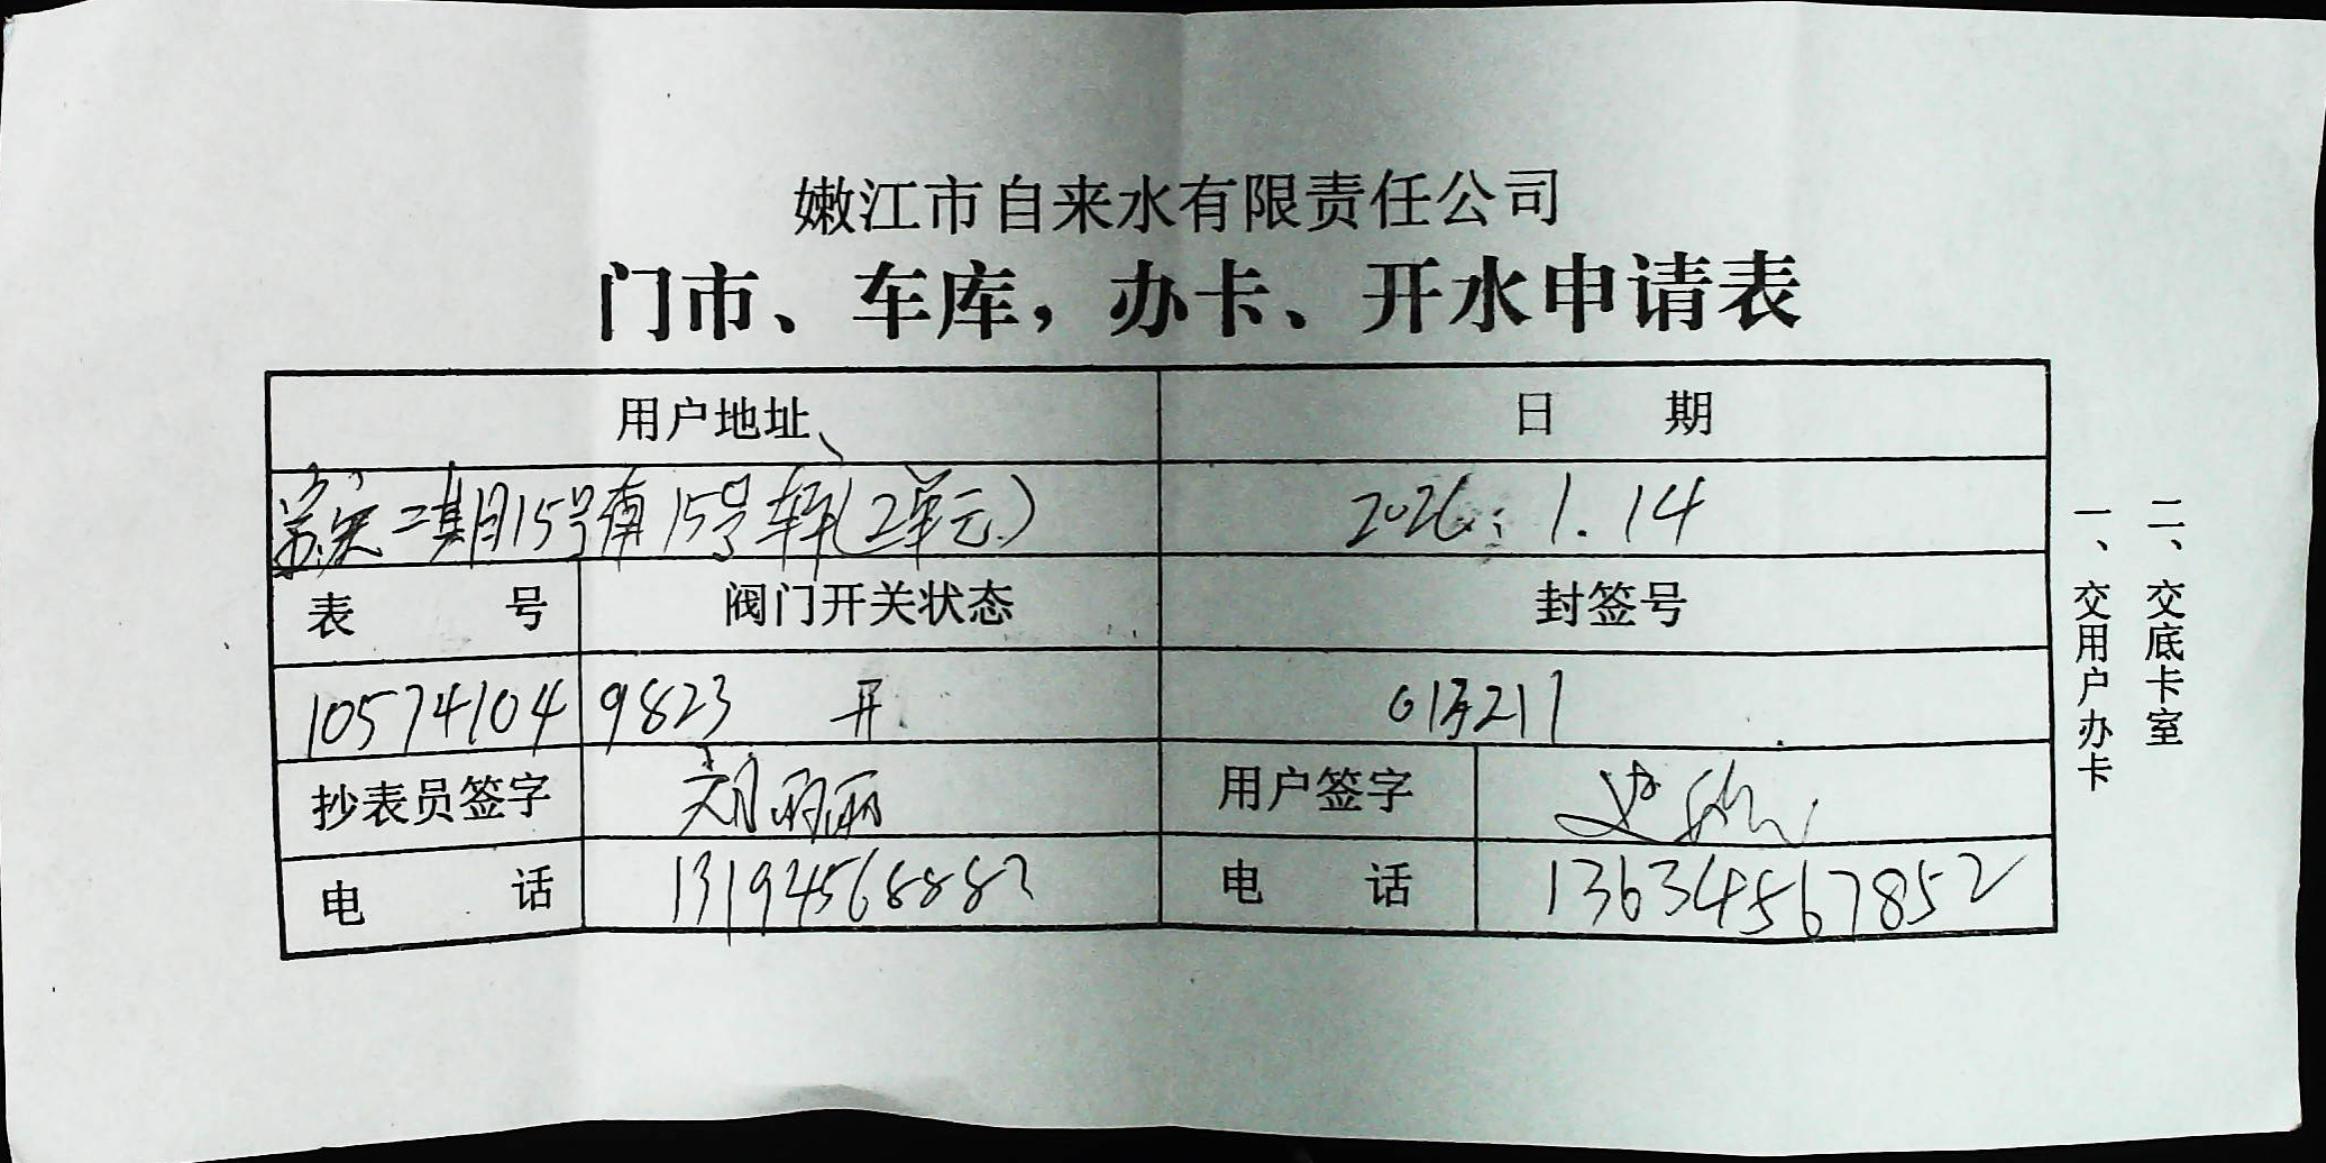 嫩江市自来水有限责任公司
门市、车库，办卡、开水申请表
用户地址 日期
二期15号南15号车库(2单元) 2026.1.14
表号 阀门开关状态 封签号
105741049823 开 211
抄表员签字 丽丽 用户签字
电话 13194568882 电话 13634567852
一、交用户办卡
二、交底卡室